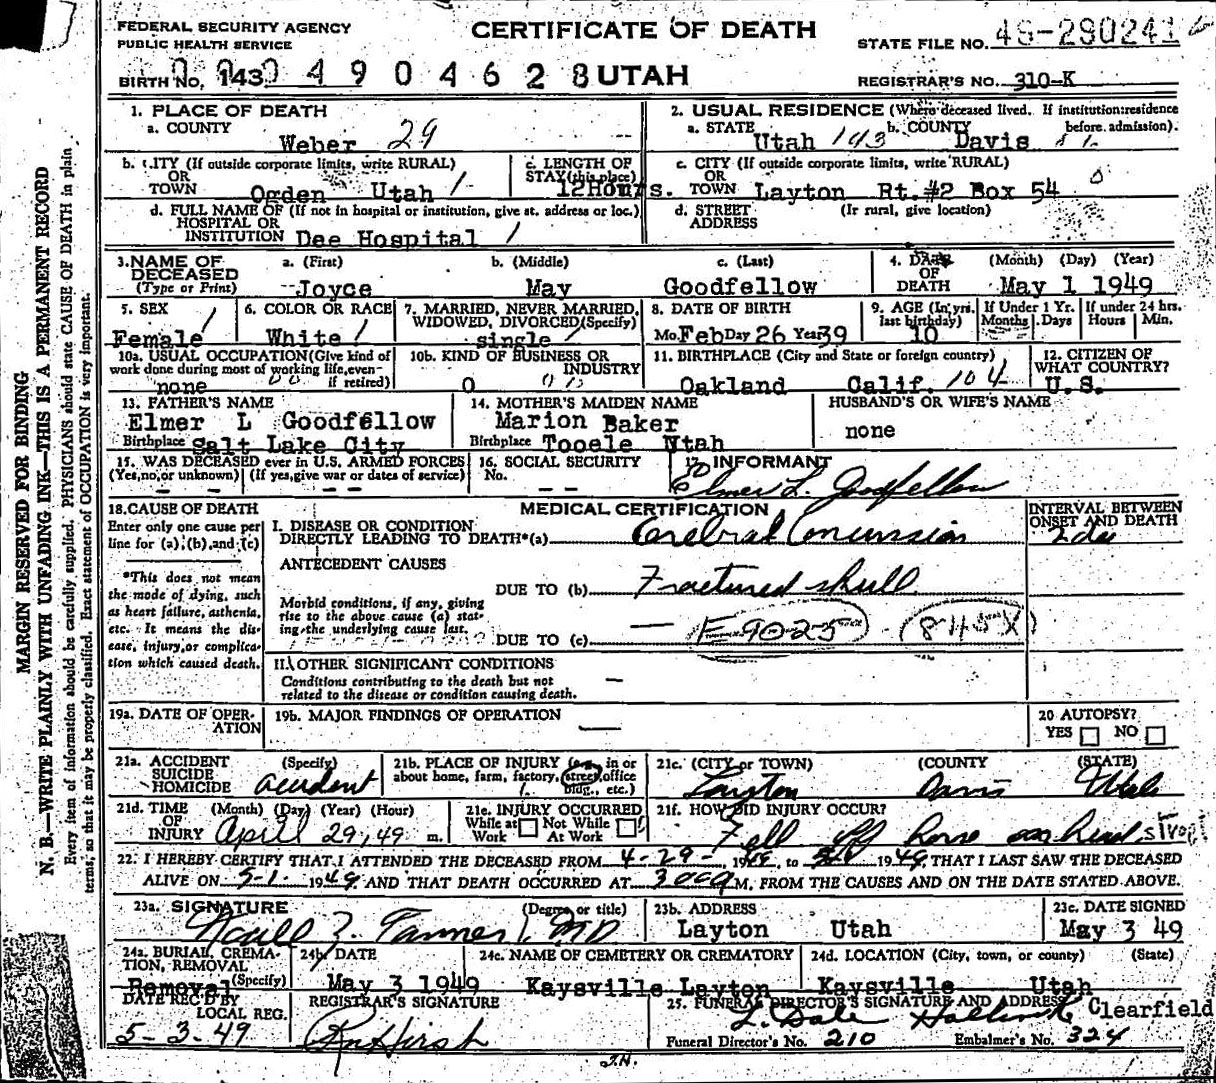 FEDERAL SECURITY AGENCY
PUBLIC HEALTH SERVICE
CERTIFICATE OF DEATH
STATE FILE NO.
BIRTH NO. 143 0 4 9 0 4 6 2 8 UTAH
REGISTRAR'S NO. 310-K
MARGIN RESERVED FOR BINDING
N. B.—WRITE PLAINLY WITH UNFADING INK—THIS IS A PERMANENT RECORD
Every item of information should be carefully supplied. PHYSICIANS should state CAUSE OF DEATH in plain
terms, so that it may be properly classified. Exact statement of OCCUPATION is very important.
1. PLACE OF DEATH
a. COUNTY
Weber 29
2. USUAL RESIDENCE (Where deceased lived. If institution: residence
before admission).
a. STATE Utah 143 b. COUNTY Davis
b. CITY (If outside corporate limits, write RURAL)
OR
TOWN Ogden Utah 1
c. LENGTH OF
STAY (this place)
12Hours.
c. CITY (If outside corporate limits, write RURAL)
OR
TOWN Layton Rt. #2 Box 54 0
d. FULL NAME OF (If not in hospital or institution, give st. address or loc.)
HOSPITAL OR
INSTITUTION Dee Hospital 1
d. STREET (If rural, give location)
ADDRESS
3. NAME OF
DECEASED
(Type or Print)
a. (First) b. (Middle) c. (Last)
Joyce May Goodfellow
4. DATE
OF
DEATH
(Month) (Day) (Year)
May 1 1949
5. SEX
Female
6. COLOR OR RACE
White
7. MARRIED, NEVER MARRIED,
WIDOWED, DIVORCED (Specify)
single
8. DATE OF BIRTH
Mo. Feb Day 26 Year 39
9. AGE (In yrs.
last birthday)
10
If Under 1 Yr.
Months Days
If under 24 hrs.
Hours Min.
10a. USUAL OCCUPATION (Give kind of
work done during most of working life, even
if retired)
none
10b. KIND OF BUSINESS OR
INDUSTRY
0
11. BIRTHPLACE (City and State or foreign country)
Oakland Calif. 104
12. CITIZEN OF
WHAT COUNTRY?
U.S.
13. FATHER'S NAME
Elmer L Goodfellow
Birthplace Salt Lake City
14. MOTHER'S MAIDEN NAME
Marion Baker
Birthplace Tooele Utah
HUSBAND'S OR WIFE'S NAME
none
15. WAS DECEASED ever in U.S. ARMED FORCES
(Yes, no, or unknown) (If yes, give war or dates of service)
— — — —
16. SOCIAL SECURITY
No.
— —
17. INFORMANT
Elmer L. Goodfellow
18. CAUSE OF DEATH
Enter only one cause per
line for (a), (b), and (c)
MEDICAL CERTIFICATION
INTERVAL BETWEEN
ONSET AND DEATH
I. DISEASE OR CONDITION
DIRECTLY LEADING TO DEATH*(a) Cerebral Concussion
*This does not mean
the mode of dying, such
as heart failure, asthenia,
etc. It means the dis-
ease, injury, or complica-
tion which caused death.
ANTECEDENT CAUSES
DUE TO (b) Fractured skull
Morbid conditions, if any, giving
rise to the above cause (a) stat-
ing the underlying cause last.
DUE TO (c) — E-9025 (8145X)
II. OTHER SIGNIFICANT CONDITIONS
Conditions contributing to the death but not
related to the disease or condition causing death.
—
19a. DATE OF OPER-
ATION
19b. MAJOR FINDINGS OF OPERATION
—
20 AUTOPSY?
YES NO
21a. ACCIDENT (Specify)
SUICIDE
HOMICIDE accident
21b. PLACE OF INJURY (e.g., in or
about home, farm, factory, street, office
bldg., etc.)
21c. (CITY or TOWN) (COUNTY) (STATE)
Layton Davis Utah
21d. TIME (Month) (Day) (Year) (Hour)
OF
INJURY April 29, 49 m.
21e. INJURY OCCURRED
While at Not While
Work At Work
21f. HOW DID INJURY OCCUR?
Fell off horse on head
22. I HEREBY CERTIFY THAT I ATTENDED THE DECEASED FROM 4-29- 1949, to 1949 THAT I LAST SAW THE DECEASED
ALIVE ON 5-1- 1949 AND THAT DEATH OCCURRED AT M. FROM THE CAUSES AND ON THE DATE STATED ABOVE.
23a. SIGNATURE (Degree or title)
Tanner MD
23b. ADDRESS
Layton Utah
23c. DATE SIGNED
May 3 49
24a. BURIAL, CREMA-
TION, REMOVAL
(Specify)
Removal
24b. DATE
May 3 1949
24c. NAME OF CEMETERY OR CREMATORY
Kaysville Layton
24d. LOCATION (City, town, or county) (State)
Kaysville Utah
DATE REC'D BY
LOCAL REG.
5-3-49
REGISTRAR'S SIGNATURE
25. FUNERAL DIRECTOR'S SIGNATURE AND ADDRESS
L. Dale Clearfield
Funeral Director's No. 210 Embalmer's No. 324